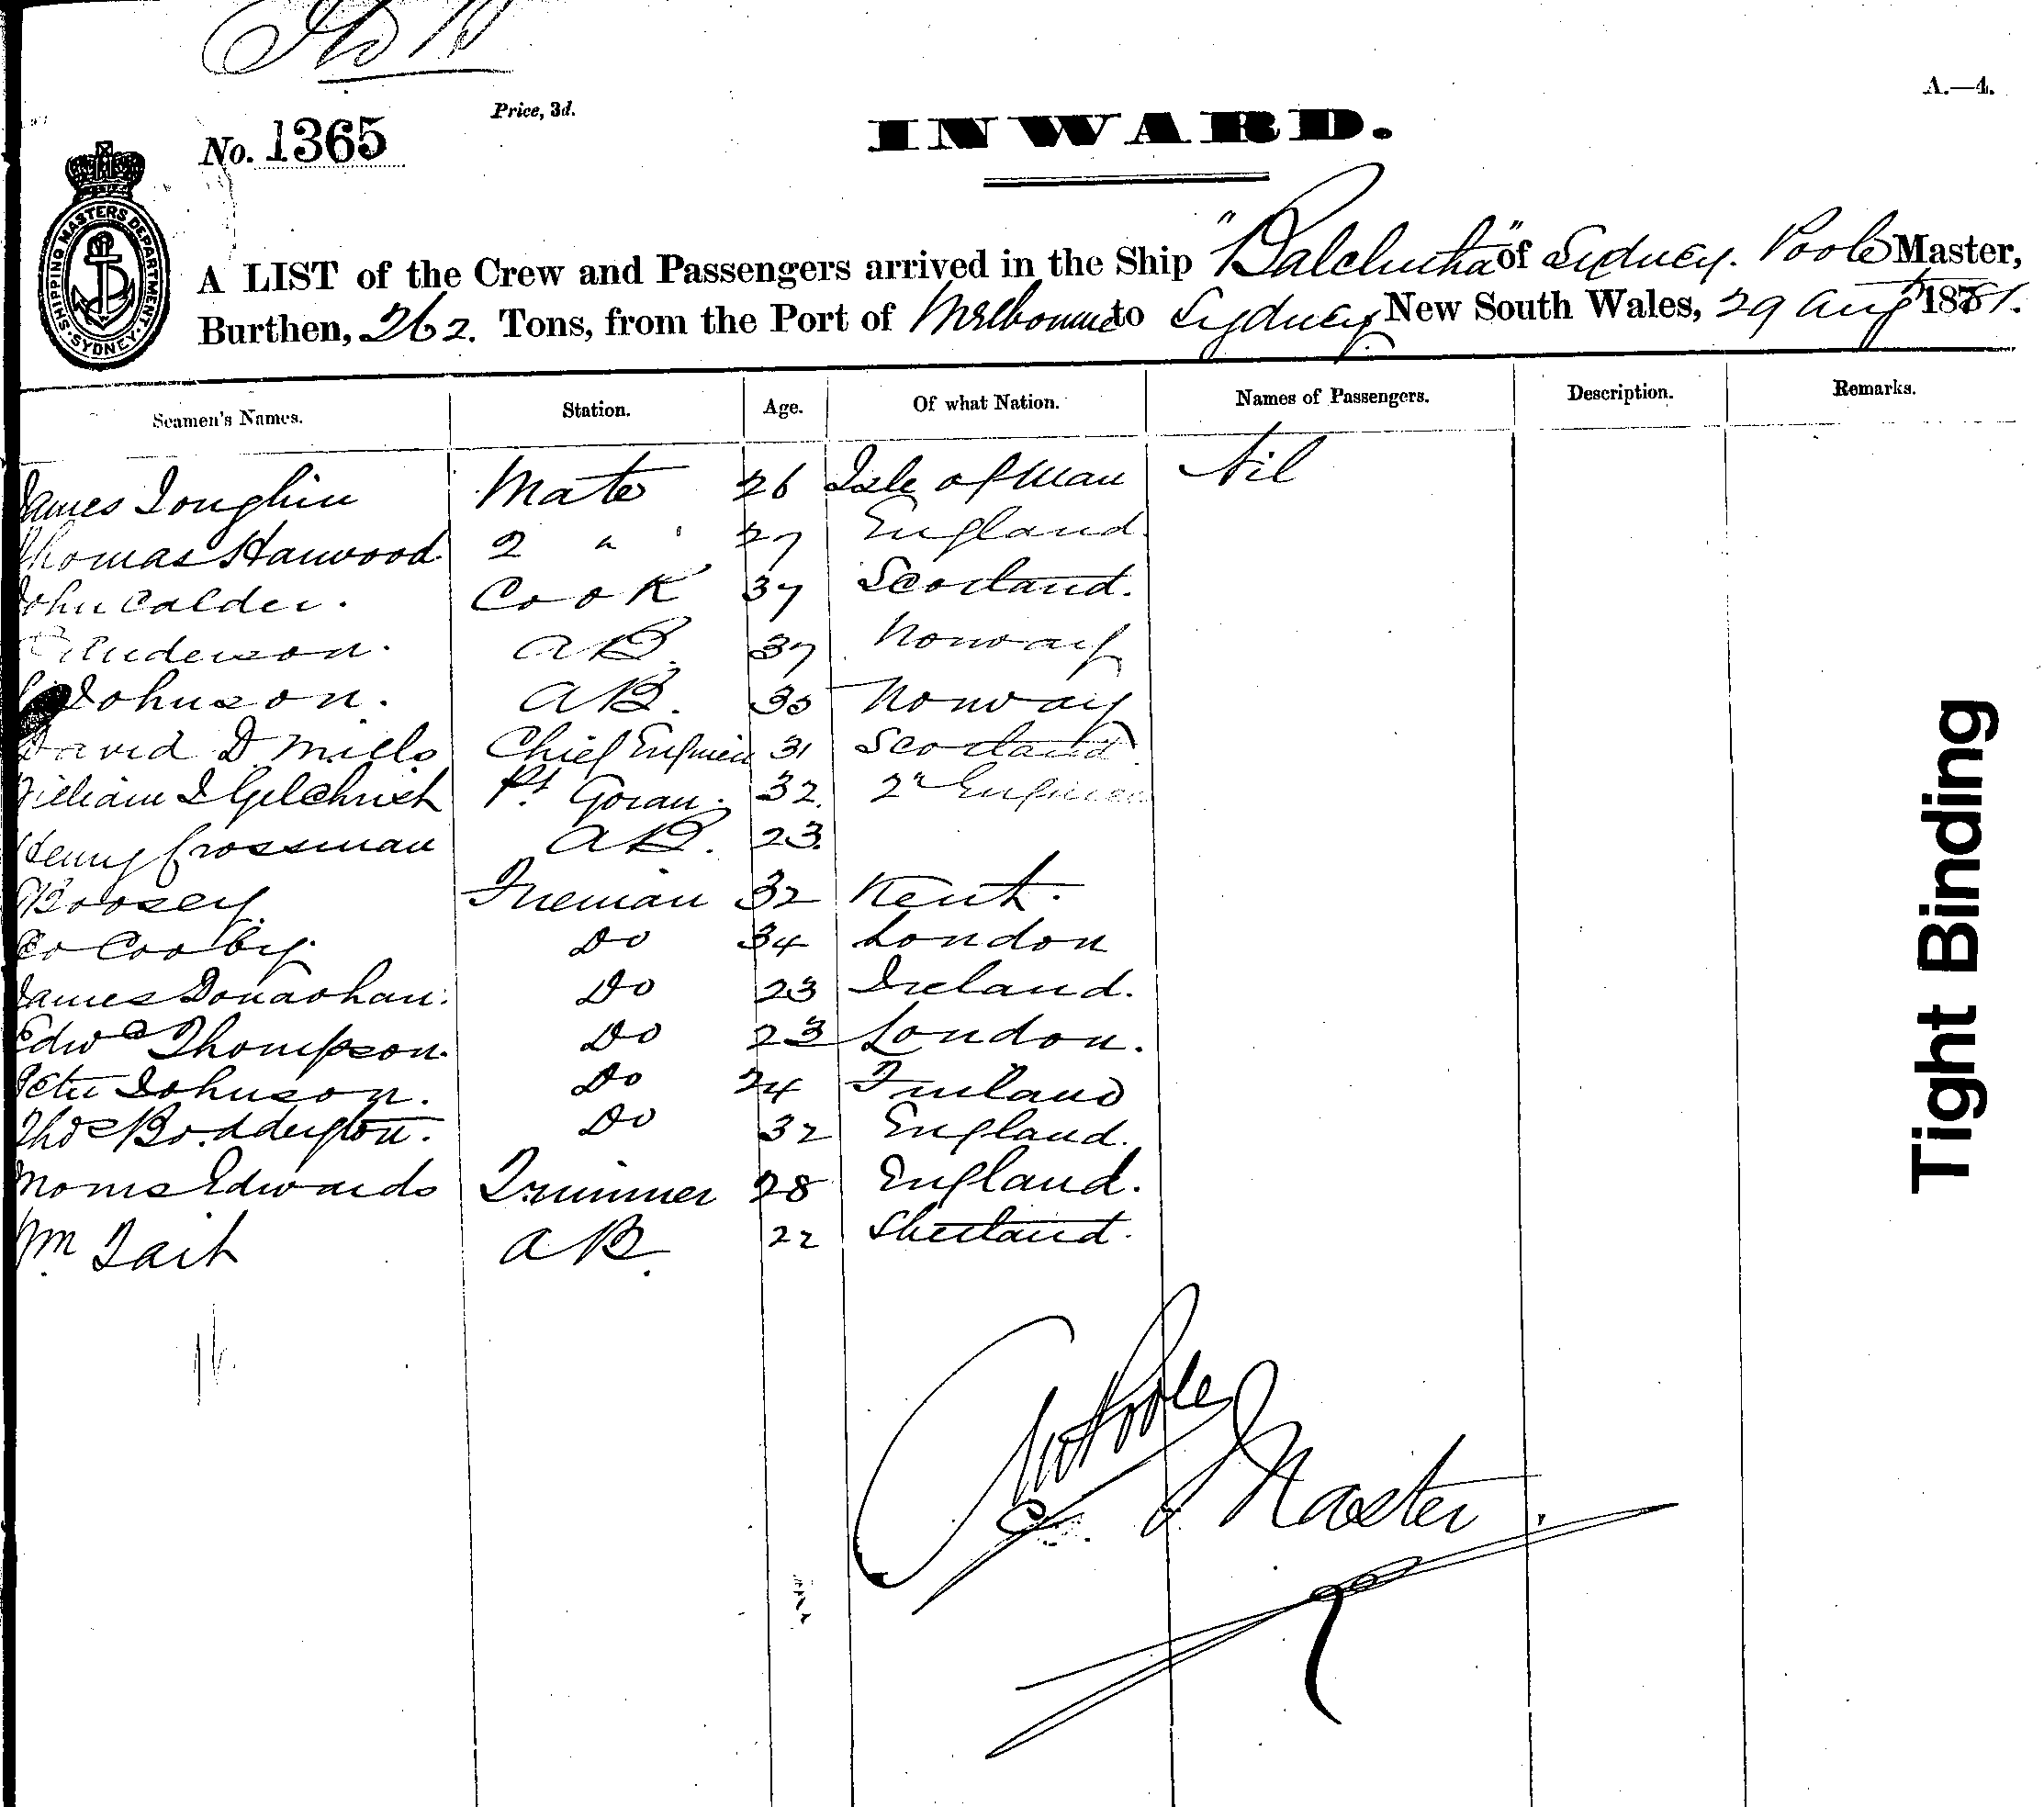 No. 1365
Price, 3d.
INWARD.
A.—4.
SHIPPING MASTERS DEPARTMENT. SYDNEY.
A LIST of the Crew and Passengers arrived in the Ship "Balclutha" of Sydney. Poole Master,
Burthen, 262. Tons, from the Port of Melbourne to Sydney New South Wales, 29 Augt 1881.
Seamen's Names. Station. Age. Of what Nation. Names of Passengers. Description. Remarks.
James Loughlin Mate 26 Isle of Man Nil
Thomas Harwood 2 " 27 England.
John Calder. Cook 37 Scotland.
Anderson. AB. 37 Norway
Johnson. AB. 30 Norway
David D. Mills Chief Engineer 31 Scotland.
William I Gilchrist Pt Goran. 32. 2n Engineer
Henry Crossman AB. 23.
Boosey. Fireman 32 Kent.
Cooby. Do 34 London
James Donaohan. Do 23 Ireland.
Edwd Thompson. Do 23 London.
Peter Johnson. Do 24 Finland
Thos Boddington. Do 32 England.
Morris Edwards Trimmer 28 England.
Wm Tait AB. 22 Shetland.
16.
Poole
Master.
Tight Binding